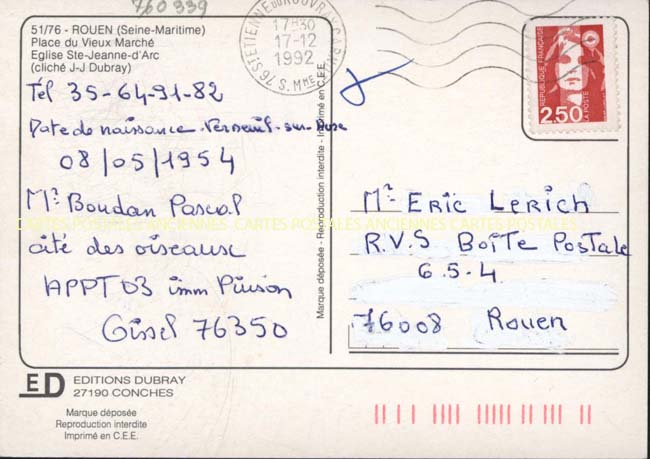 760 939
51/76 - ROUEN (Seine-Maritime)
Place du Vieux Marché
Eglise Ste-Jeanne-d'Arc
(cliché J-J Dubray)
Tél 35-64-91-82
Date de naissance Verneuil-sur-Avre
08/05/1954
Mr Boudan Pascal
cité des oiseaux
APPT 03 imm Pinson
Oissel 76350
76 ST ETIENNE DU ROUVRAY CARNOT
17H30
17-12
1992
S. MME
Marque déposée - Reproduction interdite - Imprimé en C.E.E.
REPUBLIQUE FRANÇAISE
LA POSTE
2,50
Mr ERIC LERICH
R.V.S BOÎTE POSTALE
6.5.4
76008 Rouen
CARTES POSTALES ANCIENNES CARTES POSTALES
ED EDITIONS DUBRAY
27190 CONCHES
Marque déposée
Reproduction interdite
Imprimé en C.E.E.